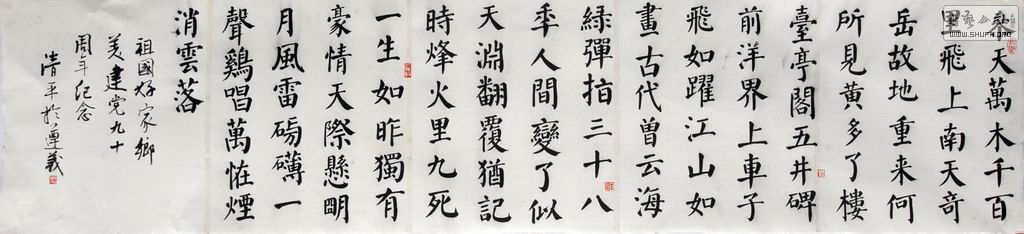 叅天萬木千百
里飛上南天奇
岳故地重来何
所見黄多了樓
臺亭閣五井碑
前洋界上車子
飛如躍江山如
畫古代曾云海
緑彈拍三十八
季人間變了似
天淵翻覆猶記
時烽火里九死
一生如昨獨有
豪情天際懸明
月風雷磅礴一
聲鷄唱萬怪煙
消雲落
祖國好家鄉
美建党九十
周年纪念
清平於遵義
WWW.SHUFA.ORG